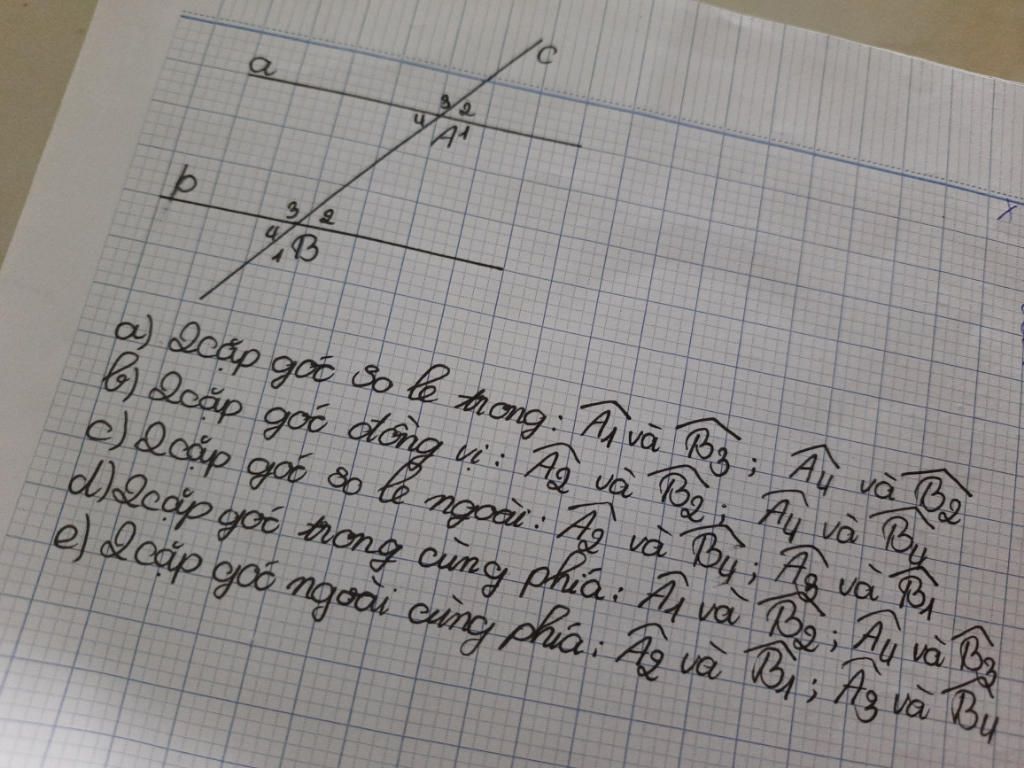 c
a
3 2
4 A 1
b
3 2
4 B
1
a) 2 cặp góc so le trong: Â1 và B̂3; Â4 và B̂2
b) 2 cặp góc đồng vị: Â2 và B̂2; Â4 và B̂4
c) 2 cặp góc so le ngoài: Â2 và B̂4; Â3 và B̂1
d) 2 cặp góc trong cùng phía: Â1 và B̂2; Â4 và B̂3
e) 2 cặp góc ngoài cùng phía: Â2 và B̂1; Â3 và B̂4